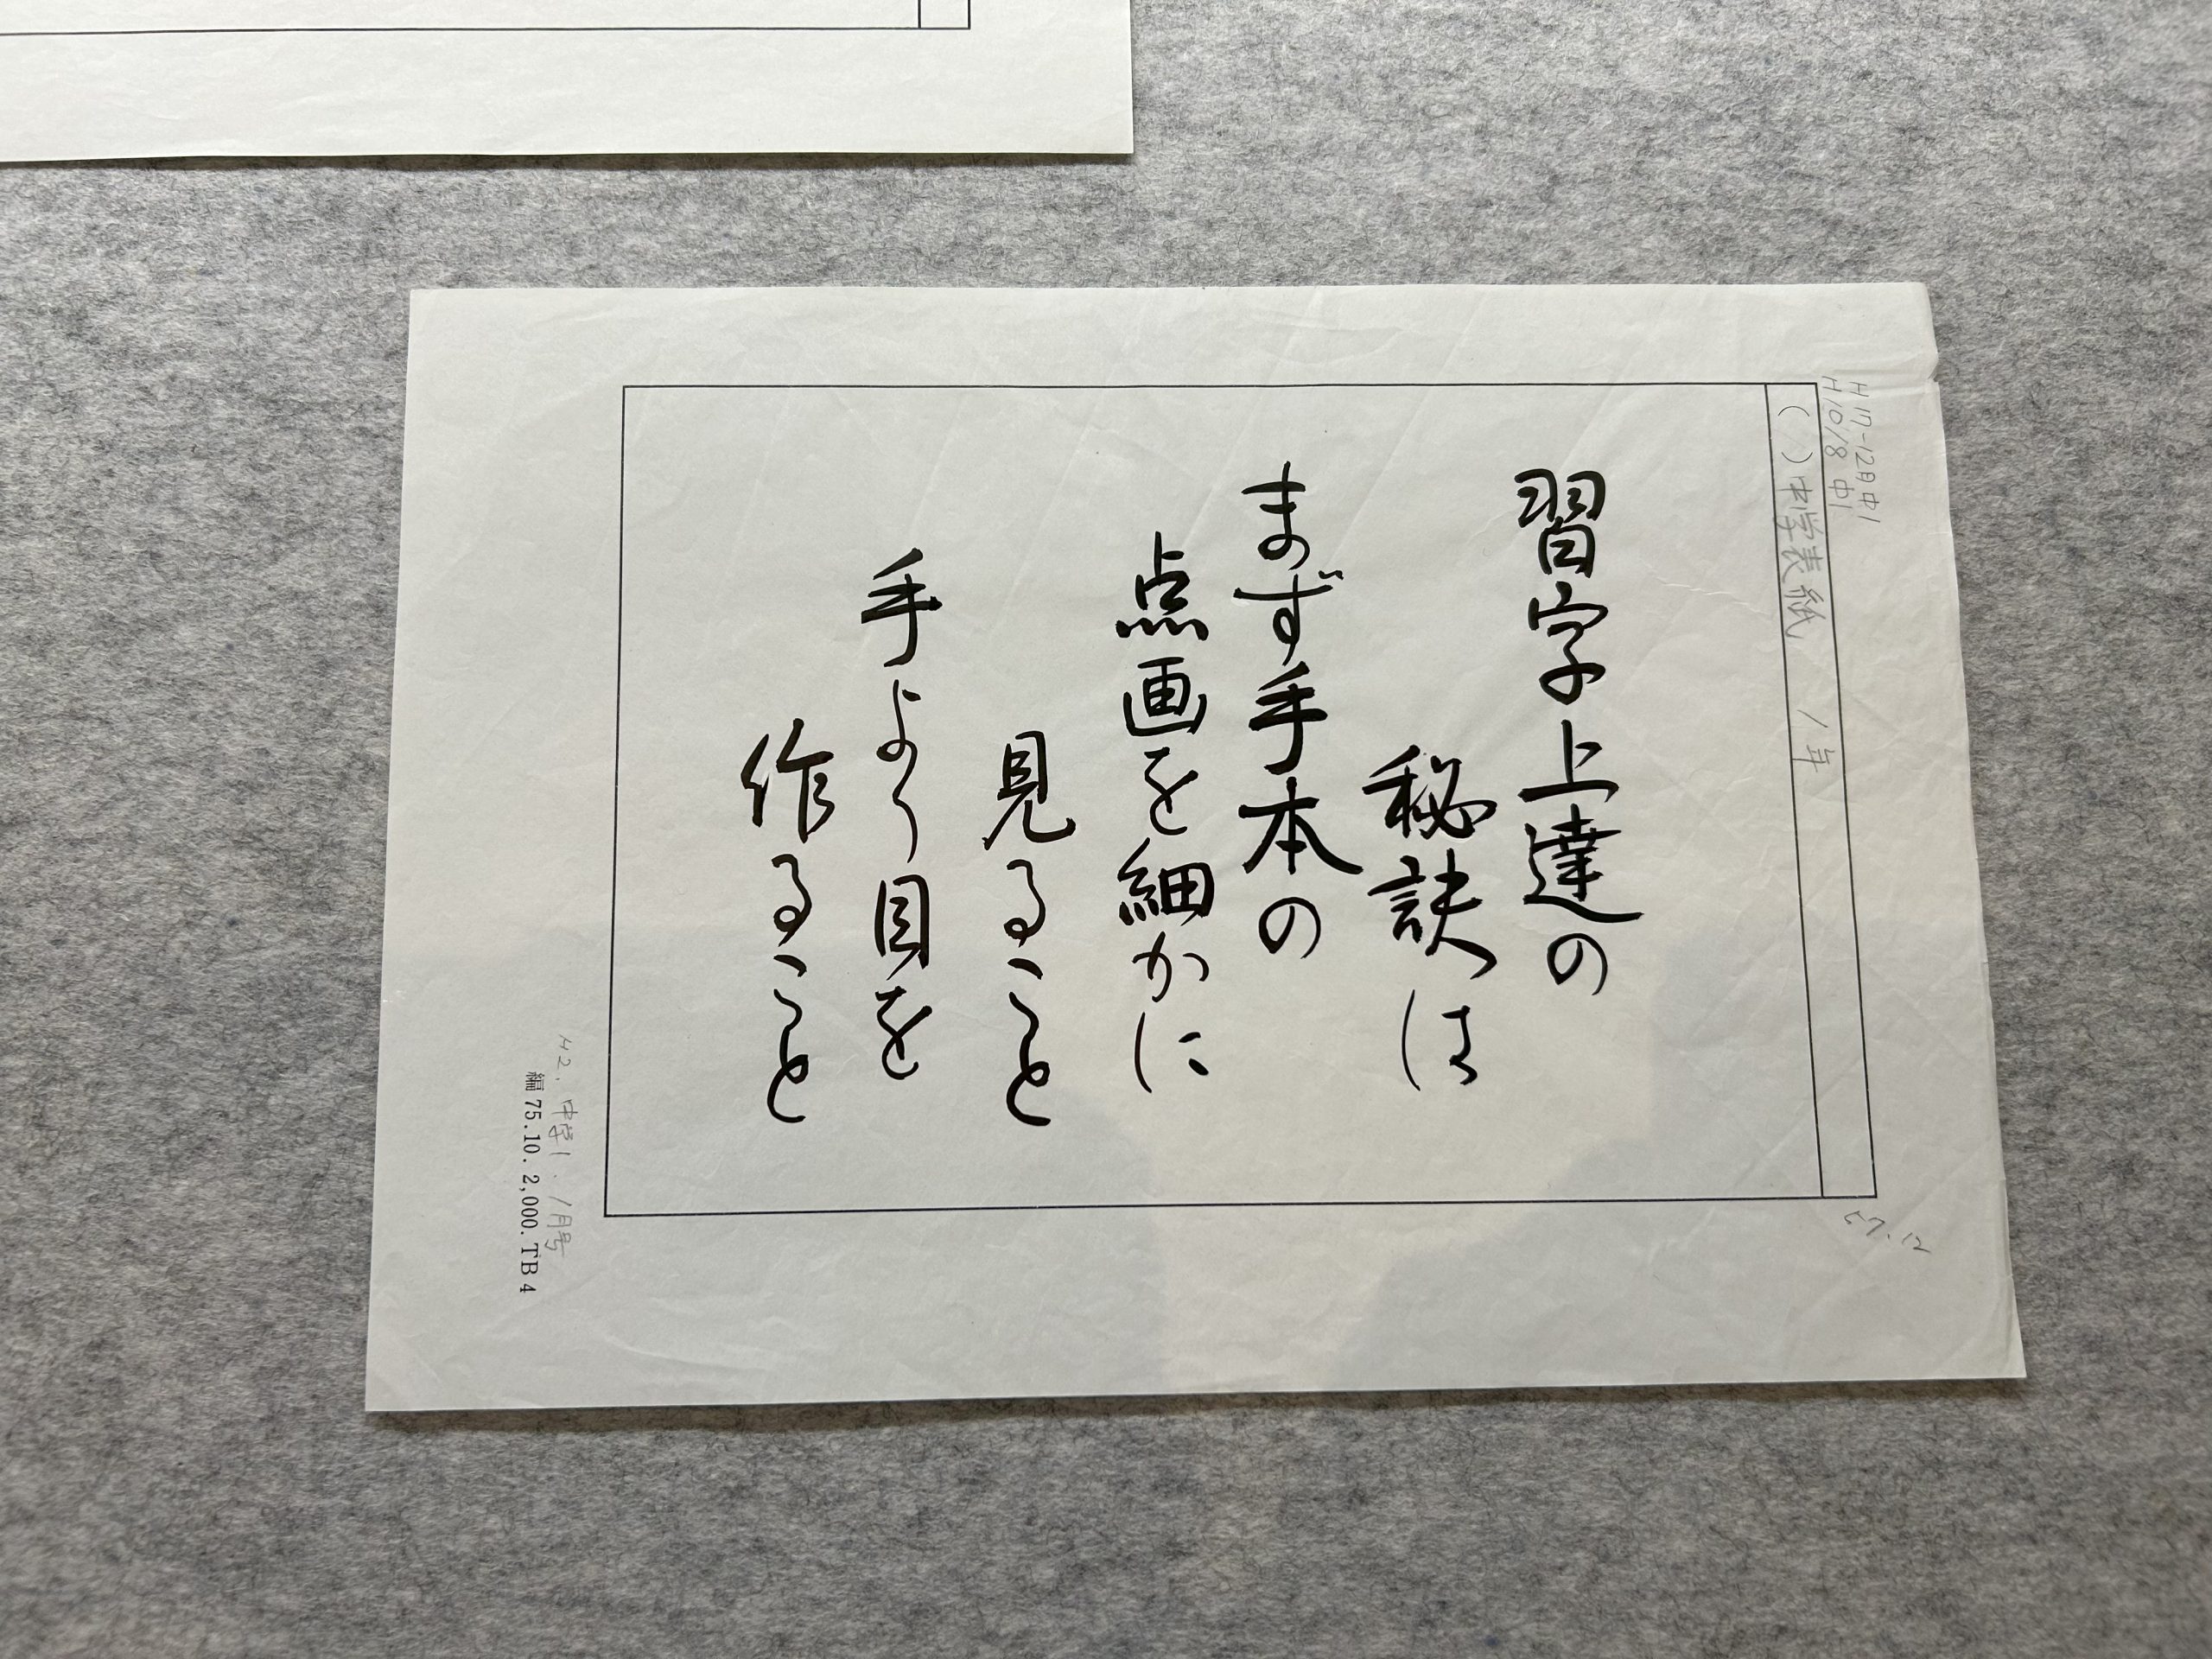 習字上達の
秘訣は
まず手本の
点画を細かに
見ること
手より目を
作ること
H17-12月中1
H10/8 中1
( )中学表紙 1年
57.12
H2.中学1.1月号
編75.10.2,000.TB4